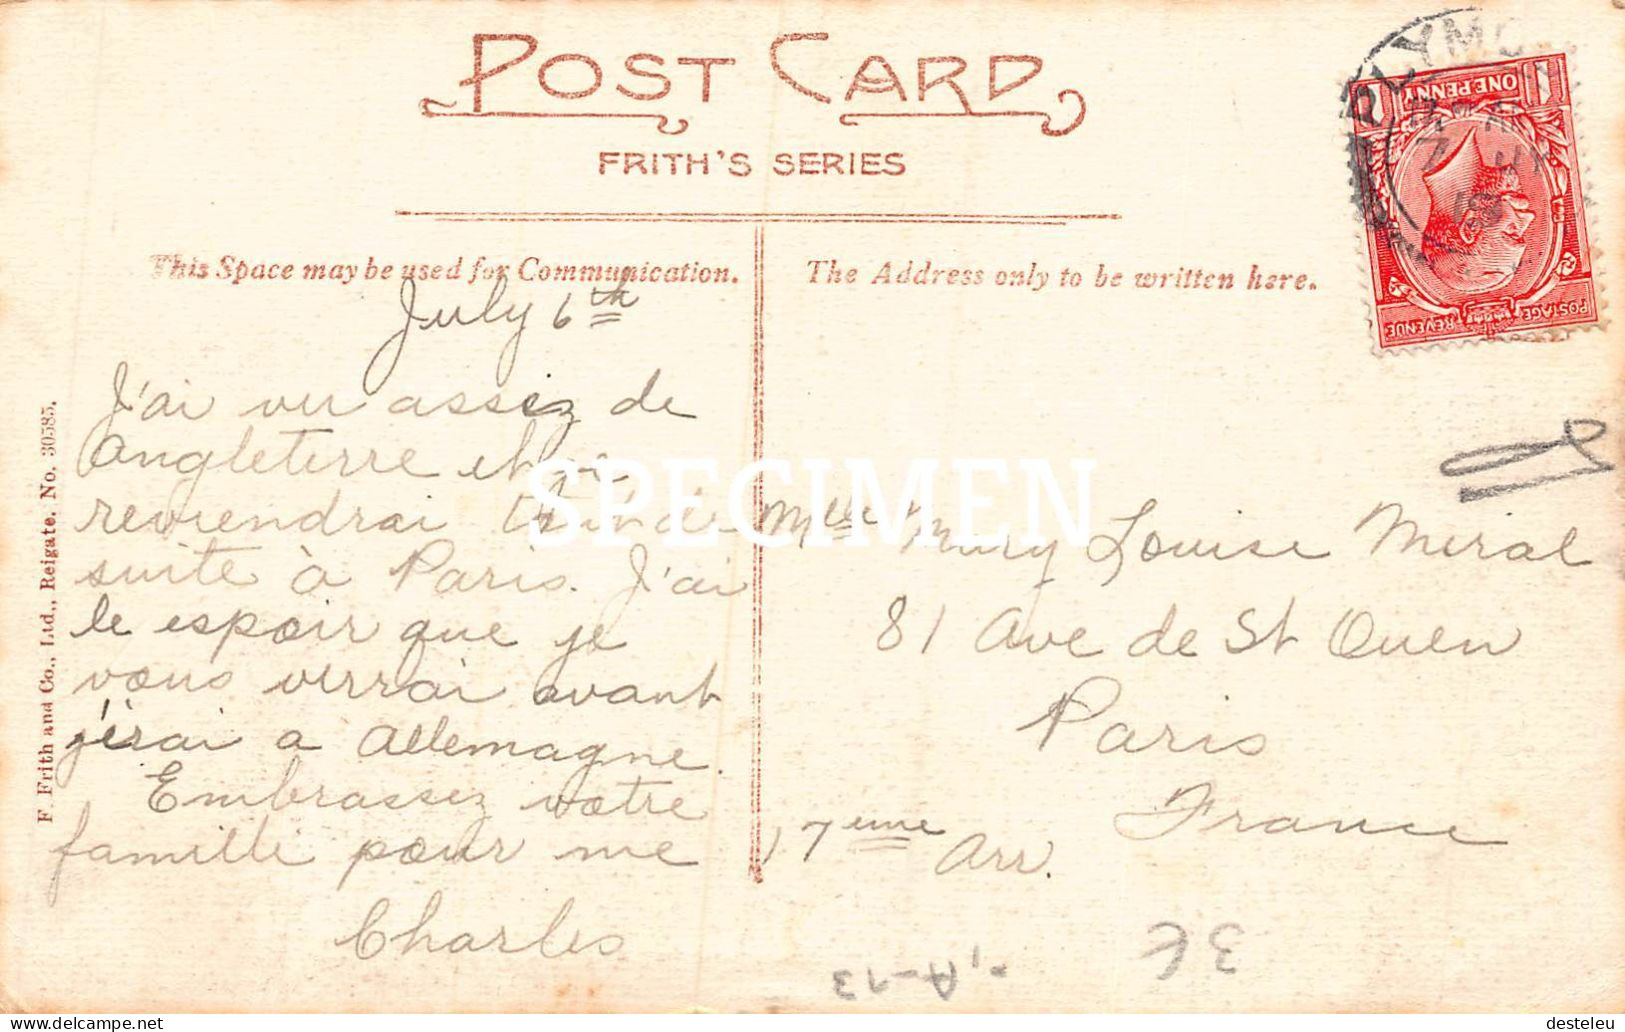 POST CARD
FRITH'S SERIES
This Space may be used for Communication.
The Address only to be written here.
July 6th
J'ai vu assez de
Angleterre et je
reviendrai
suite à Paris. J'ai
le espoir que je
vous verrai avant
j'irai a Allemagne.
Embrassez votre
famille pour me
Charles
Mlle Mary Louise Meral
81 Ave de St Ouen
Paris
France
17eme Arr.
F. Frith and Co., Ltd., Reigate. No. 30585.
ONE PENNY
1 1
POSTAGE REVENUE
PLYMO
7 JY
SPECIMEN
3€
A-13
desteleu